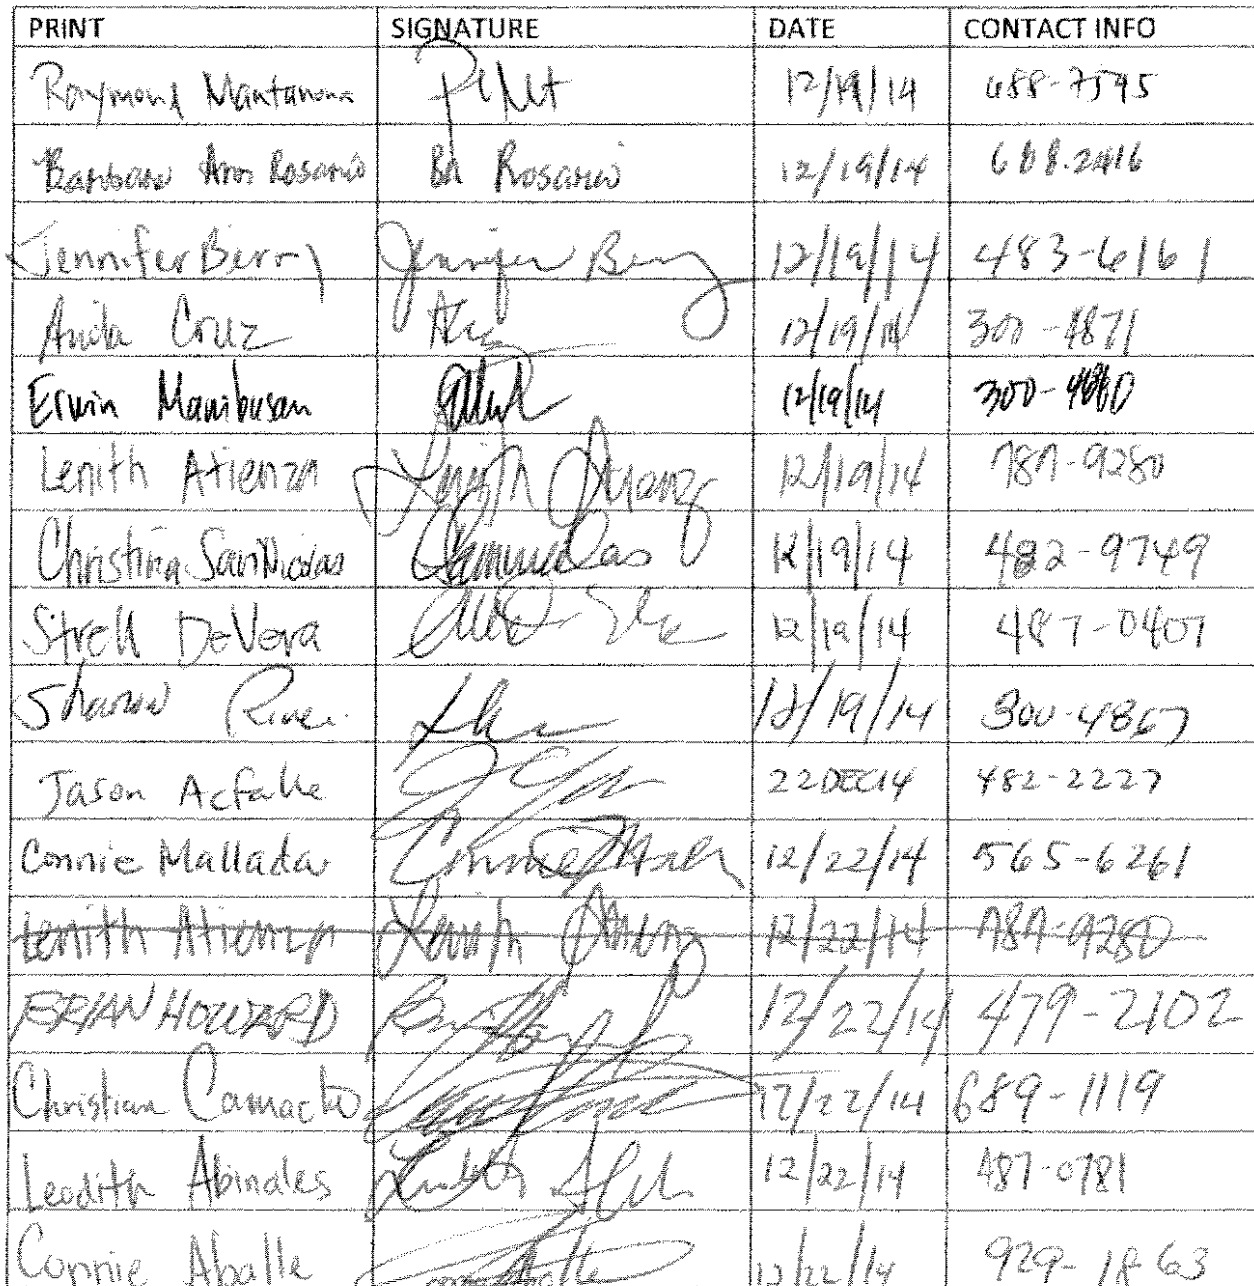 PRINT SIGNATURE DATE CONTACT INFO
Raymond Mantanona 12/19/14 688-7595
Barbara Ann Rosario BA Rosario 12/19/14 688.2416
Jennifer Berry Jennifer Berry 12/19/14 483-6161
Anita Cruz 12/19/14 300-4871
Erwin Manibusan 12/19/14 300-
Lenith Atienza Lenith Atienza 12/19/14 787-9280
Christina SanNicolas 12/19/14 482-9749
Strell DeVera 12/19/14 487-0407
Sharon 12/19/14 300-4867
Jason Acfalle 22DEC14 482-2227
Connie Mallada Connie 12/22/14 565-6261
Lenith Atienza Lenith Atienza 12/22/14 787-9280
BRIAN HOWARD 12/22/14 479-2102
Christian Camacho 12/22/14 689-1119
Leodith Abinales 12/22/14 487-0781
Connie Aballe 12/22/14 929-1863